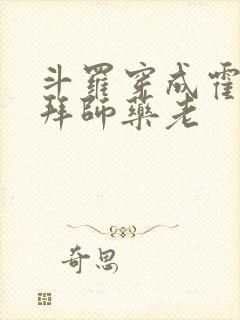 斗羅穿成霍
拜師藥老
奇思